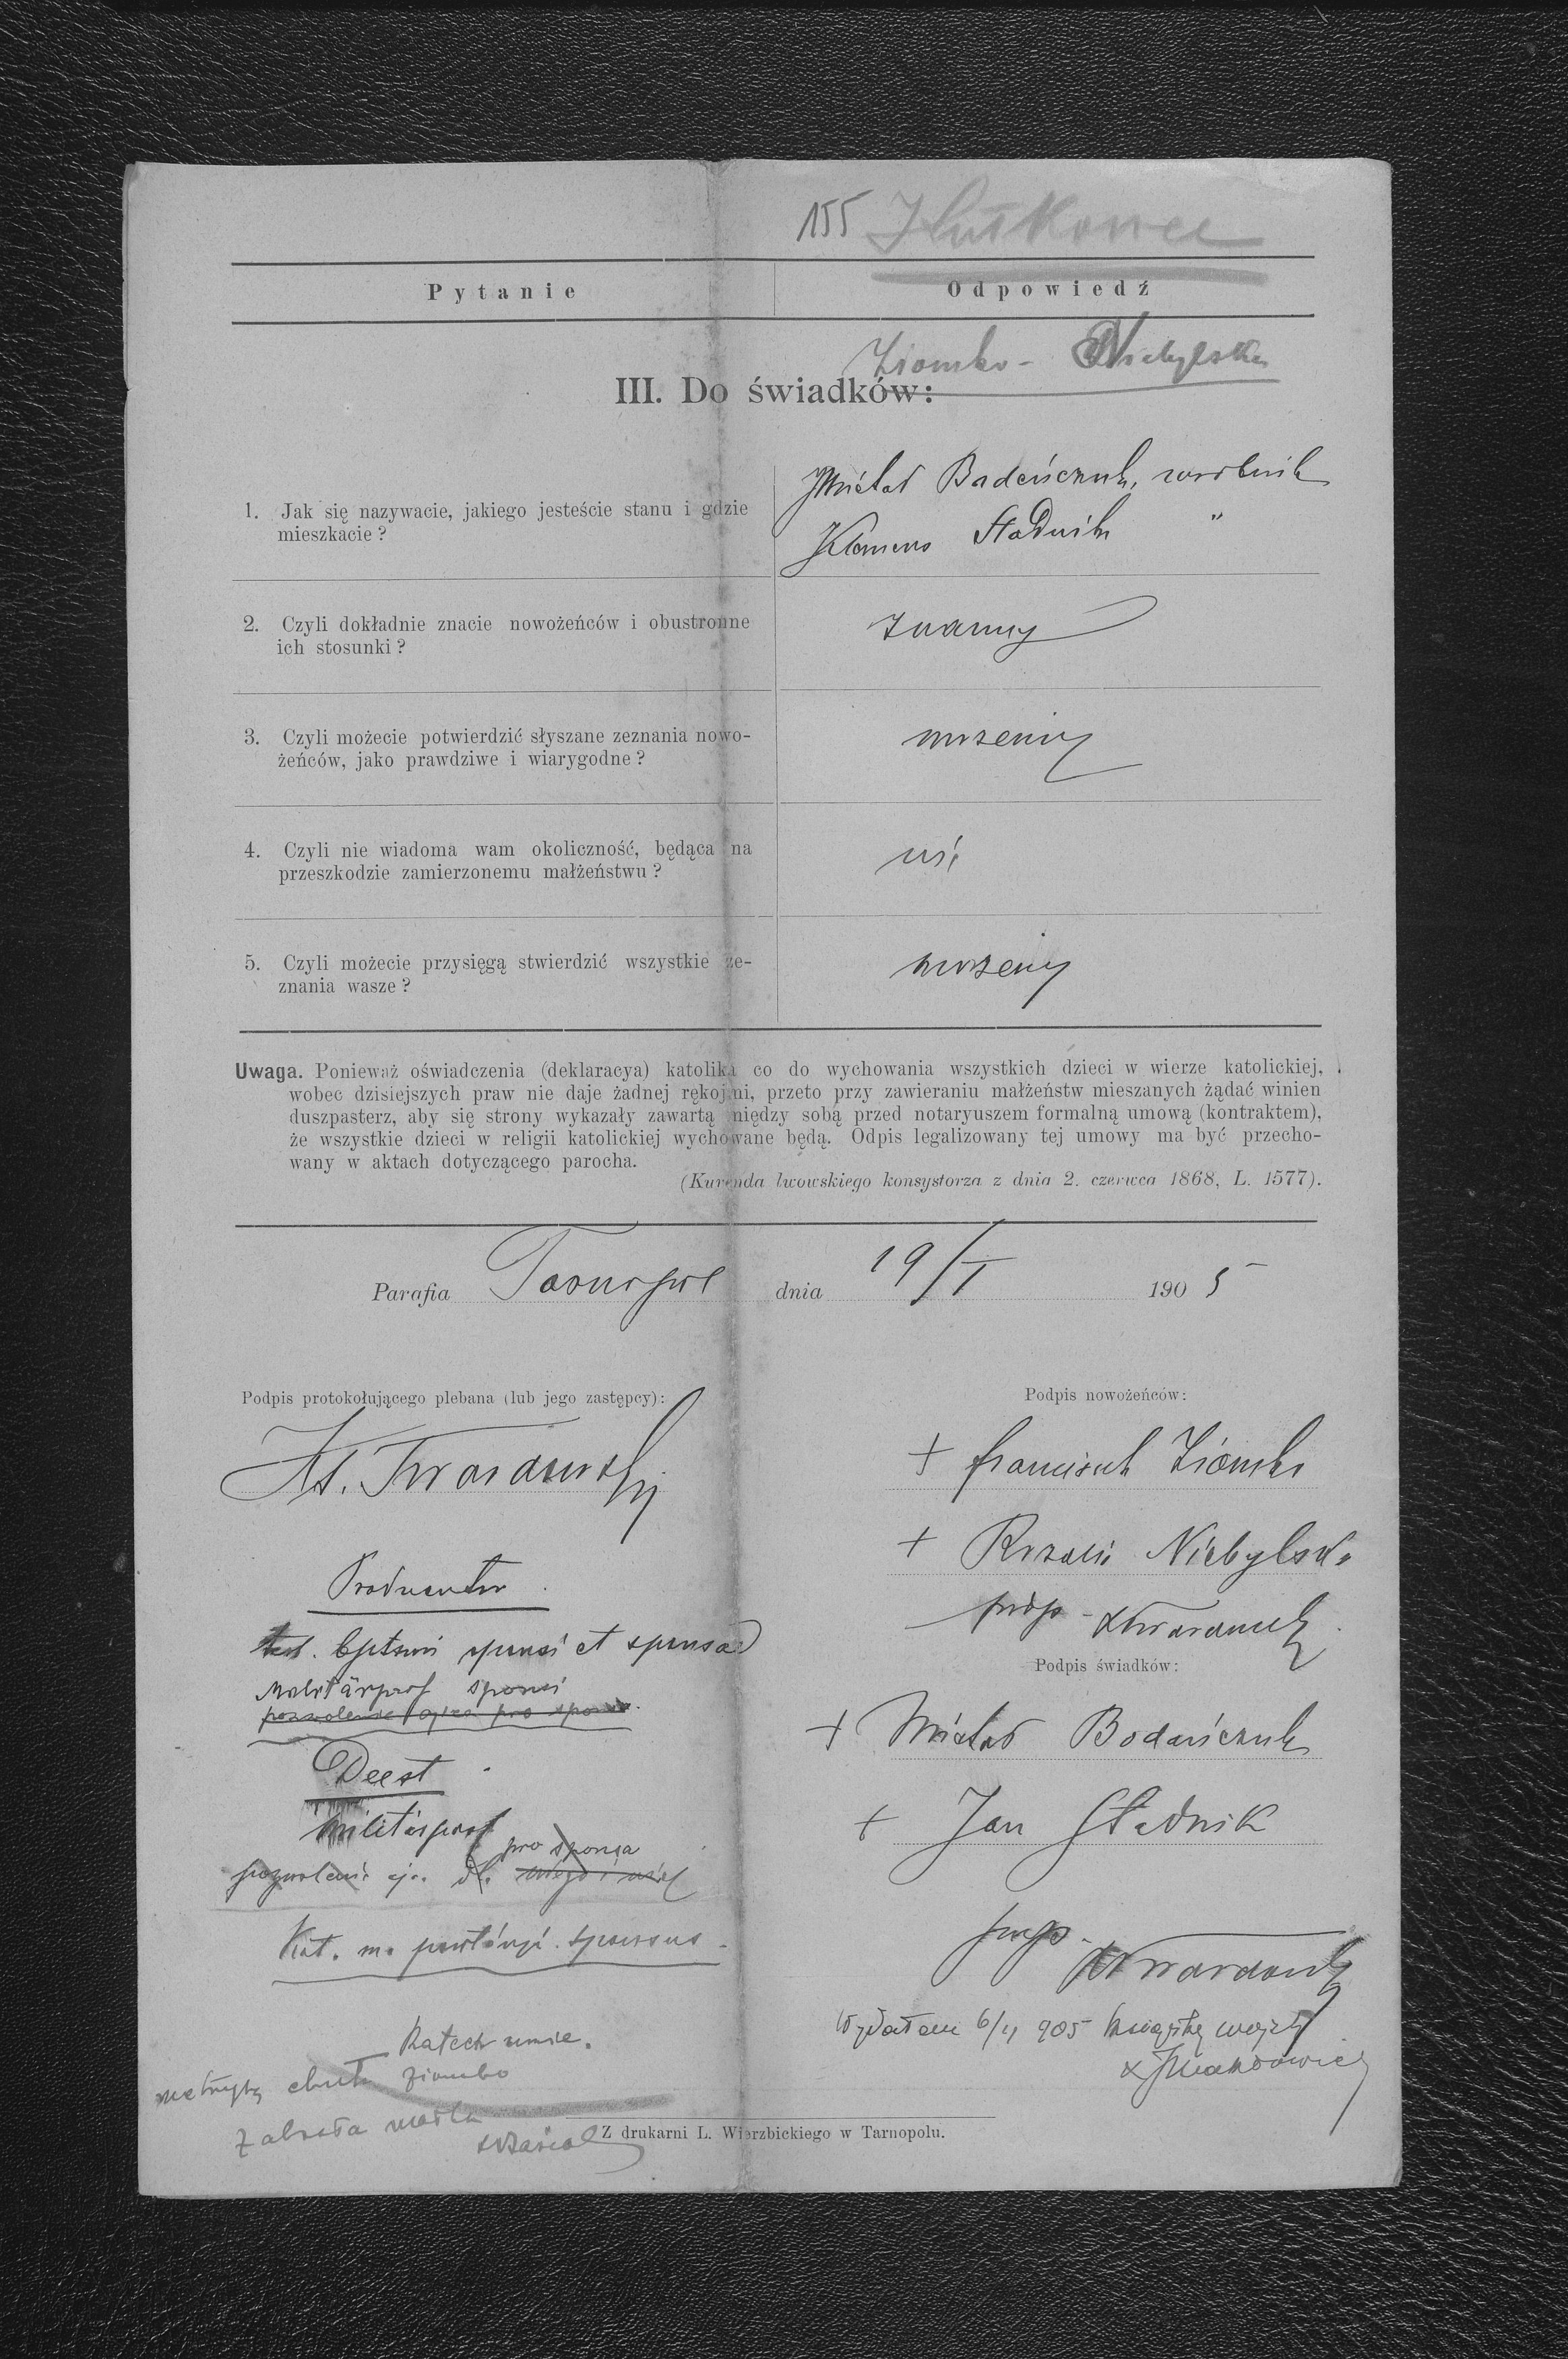 155 Hłuszkowce
Pytanie Odpowiedź
Ziomko - Niebylska
III. Do świadków:
1. Jak się nazywacie, jakiego jesteście stanu i gdzie
mieszkacie?
Michał Bodeńczuk, zarobnik
Klemens Stadnik "
2. Czyli dokładnie znacie nowożeńców i obustronne
ich stosunki?
znamy
3. Czyli możecie potwierdzić słyszane zeznania nowo-
żeńców, jako prawdziwe i wiarygodne?
możemy
4. Czyli nie wiadoma wam okoliczność, będąca na
przeszkodzie zamierzonemu małżeństwu?
nie
5. Czyli możecie przysięgą stwierdzić wszystkie ze-
znania wasze?
możemy
Uwaga. Ponieważ oświadczenia (deklaracya) katolika co do wychowania wszystkich dzieci w wierze katolickiej,
wobec dzisiejszych praw nie daje żadnej rękojmi, przeto przy zawieraniu małżeństw mieszanych żądać winien
duszpasterz, aby się strony wykazały zawartą między sobą przed notaryuszem formalną umową (kontraktem),
że wszystkie dzieci w religii katolickiej wychowane będą. Odpis legalizowany tej umowy ma być przecho-
wany w aktach dotyczącego parocha.
(Kurenda lwowskiego konsystorza z dnia 2. czerwca 1868, L. 1577).
Parafia Tarnopol dnia 19/I 1905
Podpis protokołującego plebana (lub jego zastępcy):
X. Twardowski
Podpis nowożeńców:
+ Franciszek Ziomko
+ Rozalia Niebylska
podp. XTwardowski
Producentur
test. bptismi sponsi et sponsae
Militärpass sponsi
pozwolenie ojca pro sponsa
Deest
militärpass
pro sponsa
pozwolenie ojca dla
Kat. ma powtórzyć sponsus
Podpis świadków:
+ Michał Bodeńczuk
+ Jan Stadnik
podp.
XTwardowski
Wydałem 6/4 905 książkę wojsk
Katech umie.
metrykę chrztu Ziomko
zabrała matka
Z drukarni L. Wierzbickiego w Tarnopolu.